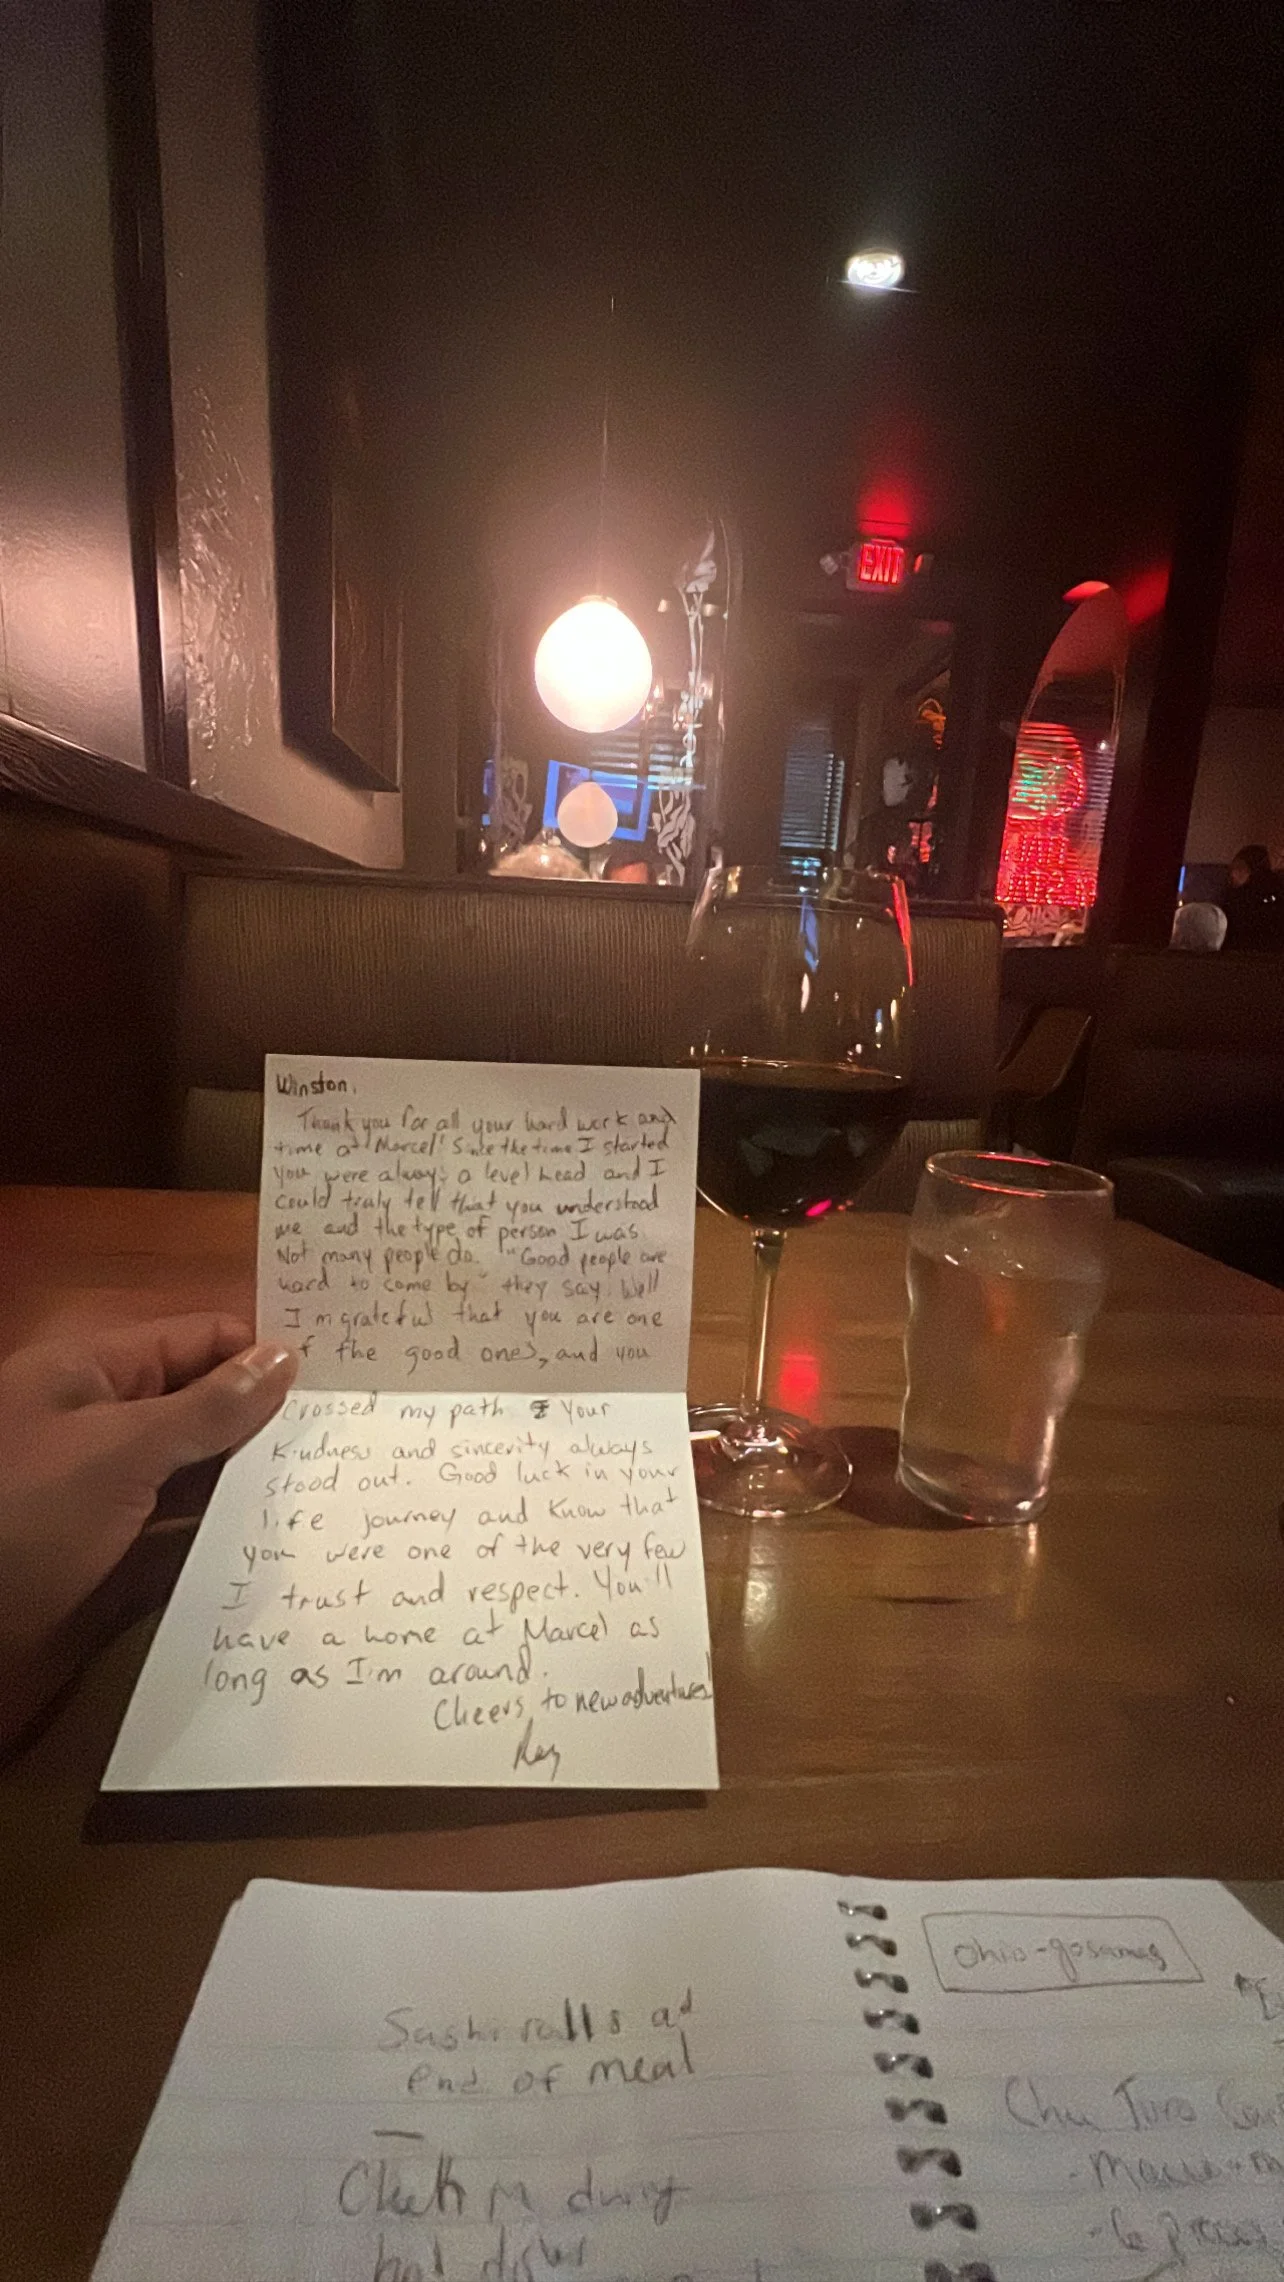 EXIT
Winston,
Thank you for all your hard work and
time at Marcel! Since the time I started
you were always a level head and I
could truly tell that you understood
me and the type of person I was.
Not many people do. "Good people are
hard to come by" they say. Well
I'm grateful that you are one
of the good ones, and you
crossed my path Your
kindness and sincerity always
stood out. Good luck in your
life journey and know that
you were one of the very few
I trust and respect. You'll
have a home at Marcel as
long as I'm around.
Cheers to new adventures!
Sushi rolls at
end of meal
—
during
ohio-gosamas
Chu Toro